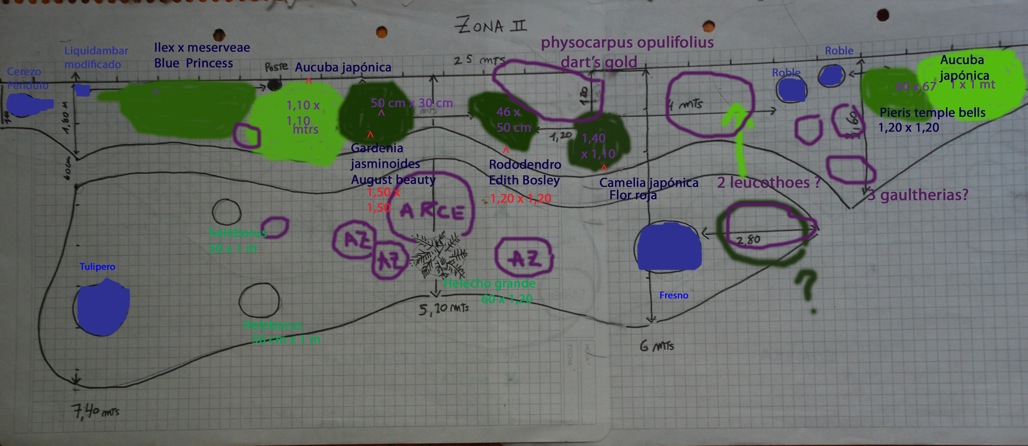 ZONA II
physocarpus opulifolius
dart's gold
Ilex x meserveae
Blue Princess
Liquidambar
modificado
Cerezo
Péndulo
Poste
Aucuba japónica
25 mts
Roble
Roble
Aucuba
japónica
1 x 1 mt
Pieris temple bells
1,20 x 1,20
1,10 x
1,10
mtrs
50 cm x 30 cm
46 x
50 cm
1,80
4 mts
1,80 M
60cm
1,20
1,40
x 1,10
3,60
Gardenia
jasminoides
August beauty
1,50 x
1,50
Rododendro
Edith Bosley
1,20 x 1,20
Camelia japónica
Flor roja
2 leucothoes ?
3 gaultherias?
ARCE
AZ
AZ
AZ
2,80
?
Tulipero
Fresno
Helecho grande
60 x 1,20
5,20 mts
6 mts
7,40 mts